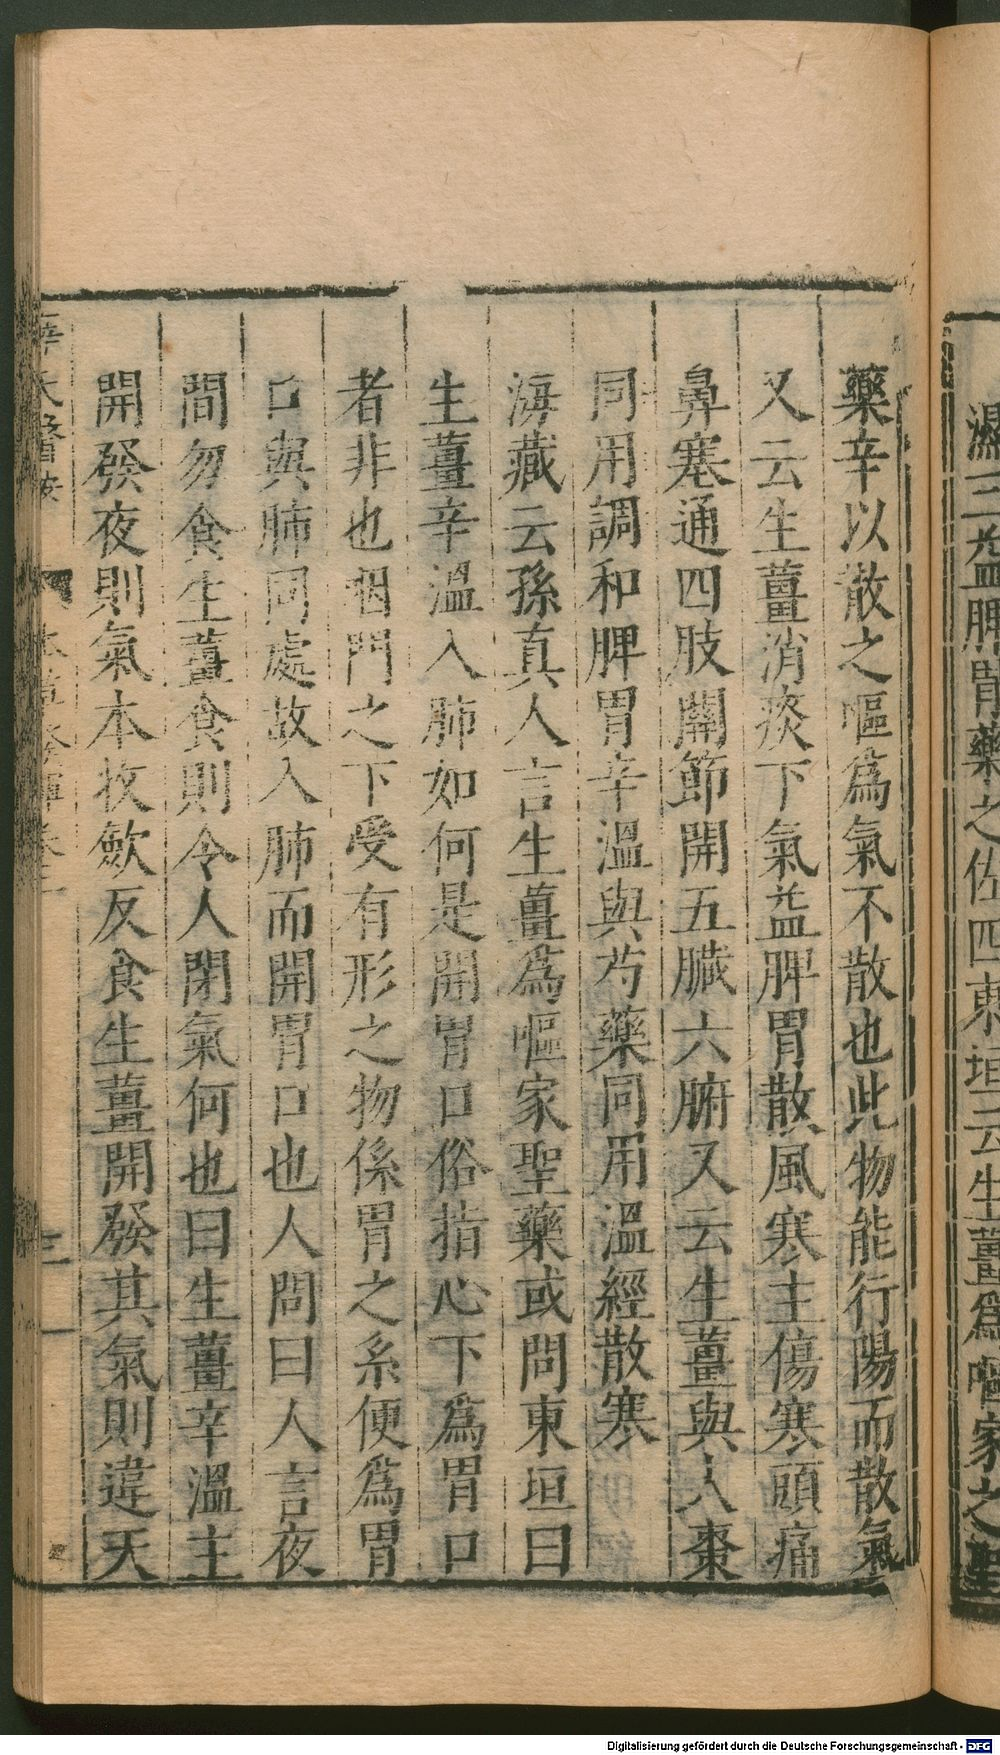 濕三益脾胃藥之佐四東垣云生薑爲嘔家之聖
藥辛以散之嘔爲氣不散也此物能行陽而散氣
又云生薑消痰下氣益脾胃散風寒主傷寒頭痛
鼻塞通四肢關節開五臟六腑又云生薑與大棗
同用調和脾胃辛溫與芍藥同用溫經散寒
海藏云孫真人言生薑爲嘔家聖藥或問東垣曰
生薑辛溫入肺如何是開胃口俗指心下爲胃口
者非也咽門之下受有形之物係胃之系便爲胃
口與肺同處故入肺而開胃口也人問曰人言夜
間勿食生薑食則令人閉氣何也曰生薑辛溫主
開發夜則氣本收斂反食生薑開發其氣則違天
薛氏醫按 本草發揮卷三 三一
Digitalisierung gefördert durch die Deutsche Forschungsgemeinschaft - DFG